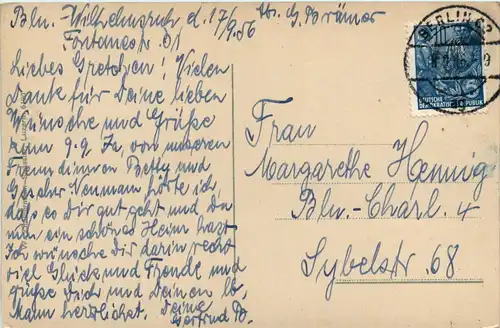 Bln.-Wilhelmsruh d. 17/9.56
Abs. G. Brümer
Fontanestr.
Liebes Gretchen! Vielen
Dank für Deine lieben
Wünsche und Grüße
zum 9.9. Ja, von unseren
Freundinnen Betty und
Neumann hörte ich,
daß es Dir gut geht und Du
nun ein schönes Heim hast.
Ich wünsche Dir darin recht
viel Glück und Freude und
grüße Dich und Deinen lb.
Mann herzlichst. Deine
Gertrud B.
BERLIN
DEUTSCHE
DEMOKRATISCHE REPUBLIK
Frau
Margarethe Hennig
Bln.-Charl. 4
Sybelstr. 68.